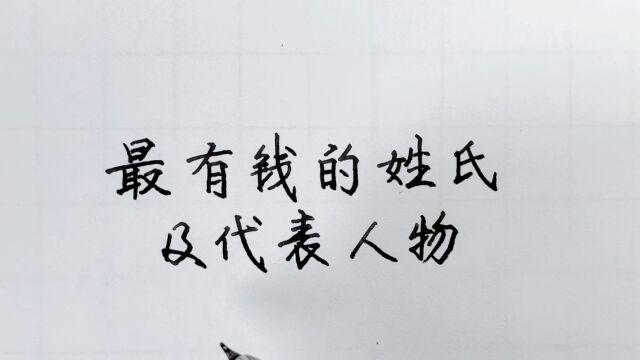 最有钱的姓氏
及代表人物